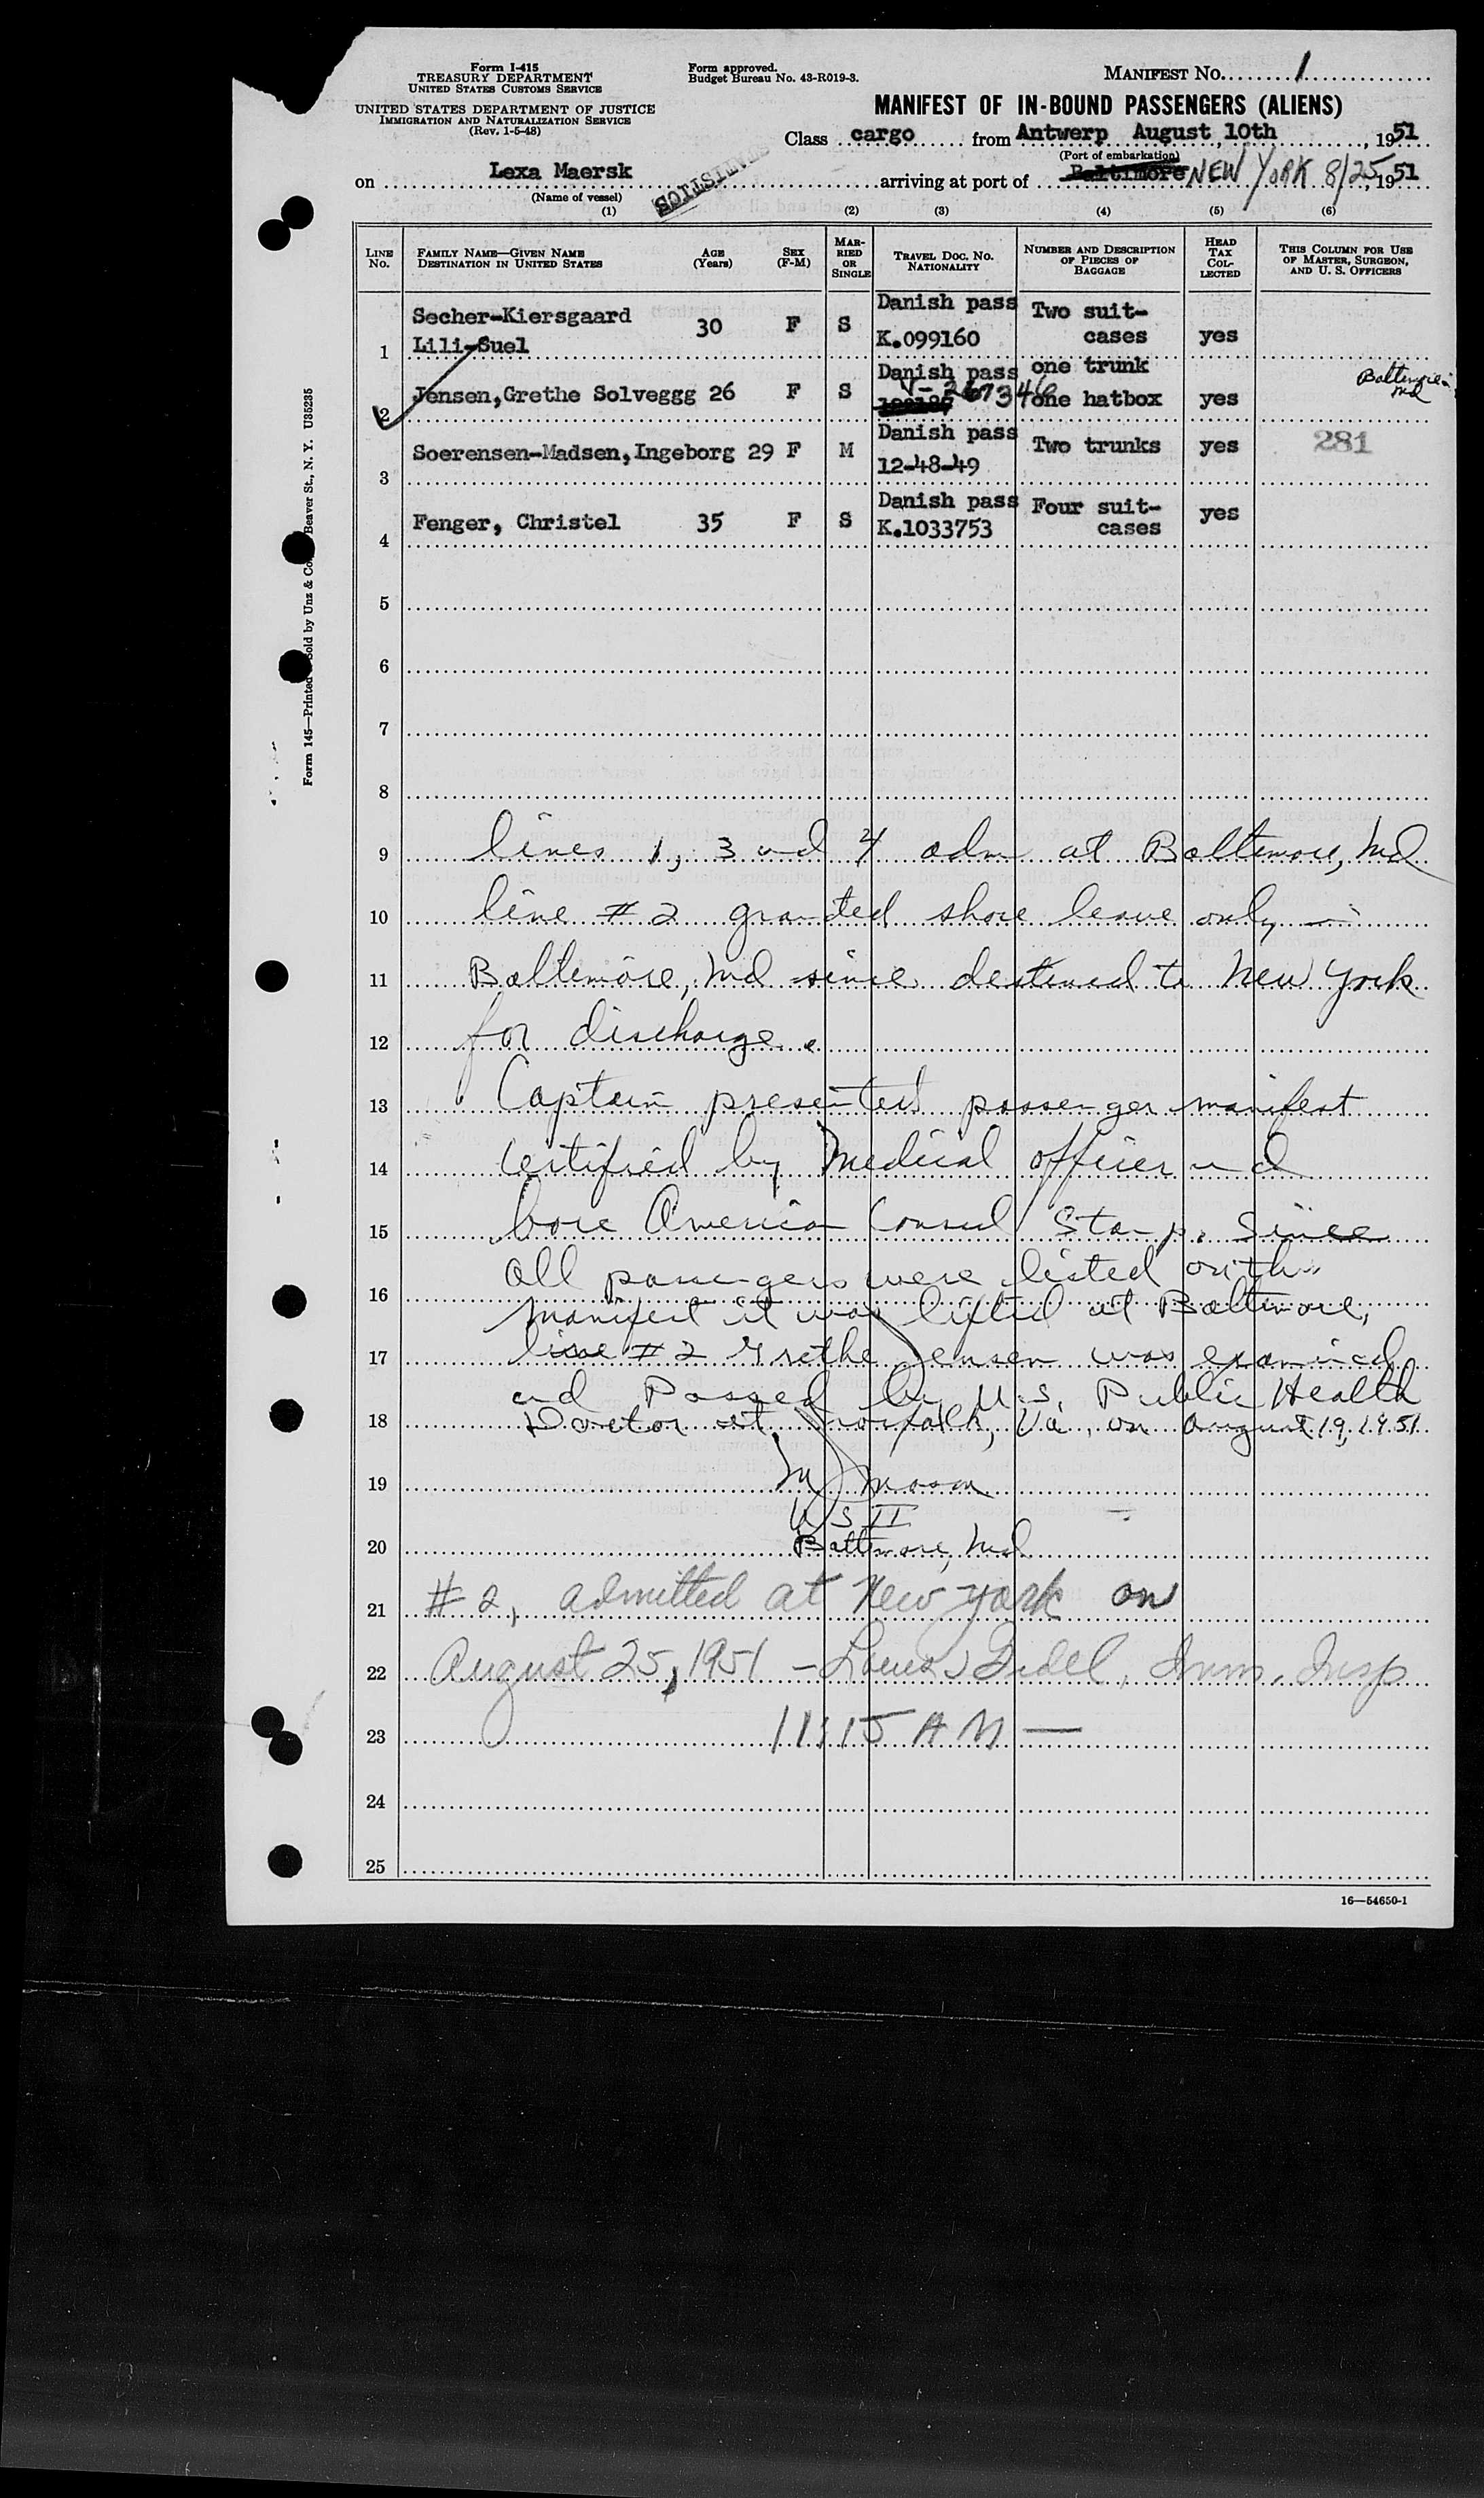 Form I-415
TREASURY DEPARTMENT
UNITED STATES CUSTOMS SERVICE
UNITED STATES DEPARTMENT OF JUSTICE
IMMIGRATION AND NATURALIZATION SERVICE
(Rev. 1-5-48)
Form approved.
Budget Bureau No. 43-R019-3.
MANIFEST NO. 1
MANIFEST OF IN-BOUND PASSENGERS (ALIENS)
Class cargo from Antwerp August, 10th, 1951
(Port of embarkation)
on Lexa Maersk arriving at port of Baltimore NEW YORK 8/25, 1951
(Name of vessel)
STATISTICS
(1) (2) (3) (4) (5) (6)
LINE No. FAMILY NAME—GIVEN NAME DESTINATION IN UNITED STATES AGE (Years) SEX (F-M) MARRIED OR SINGLE TRAVEL DOC. NO. NATIONALITY NUMBER AND DESCRIPTION OF PIECES OF BAGGAGE HEAD TAX COLLECTED THIS COLUMN FOR USE OF MASTER, SURGEON, AND U. S. OFFICERS
1 Secher-Kiersgaard Lili-Suel 30 F S Danish pass K.099160 Two suit-cases yes
2 Jensen,Grethe Solveggg 26 F S Danish pass V-267346 one trunk one hatbox yes Baltimore Md
3 Soerensen-Madsen,Ingeborg 29 F M Danish pass 12-48-49 Two trunks yes 281
4 Fenger, Christel 35 F S Danish pass K.1033753 Four suit-cases yes
5
6
7
8
9 lines 1, 3 and 4 adm at Baltimore, Md
10 line # 2 granted shore leave only in
11 Baltimore, Md since destined to New York
12 for discharge.
13 Captain presented passenger manifest
14 certified by Medical officer and
15 bore American Consul Stamp. Since
all passengers were listed on this
16 manifest it was lifted at Baltimore,
17 line # 2 Grethe Jensen was examined
and Passed by U.S. Public Health
18 Doctor at Norfolk, Va. on August 19, 1951
19 Mason
20 Baltimore, Md
21 # 2, admitted at New York on
22 August 25, 1951 - Imm. Insp
23 11:15 AM —
24
25
16—54650-1
Form 145—Printed Sold by Unz & Co. Beaver St., N. Y. U35235